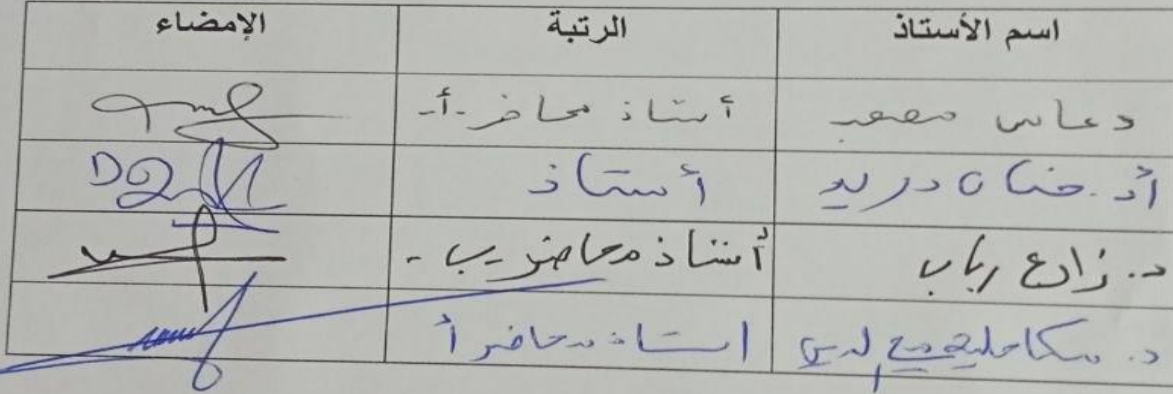 اسم الأستاذ الرتبة الإمضاء
دعاس مصعب أستاذ محاضر -أ-
أ.د. حنان دريد أستاذ
د. زارع رباب أستاذ محاضر -ب-
د. أستاذ محاضر أ